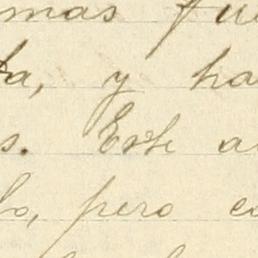 mas fu
ta, y ha
s. Este a
lo, pero co